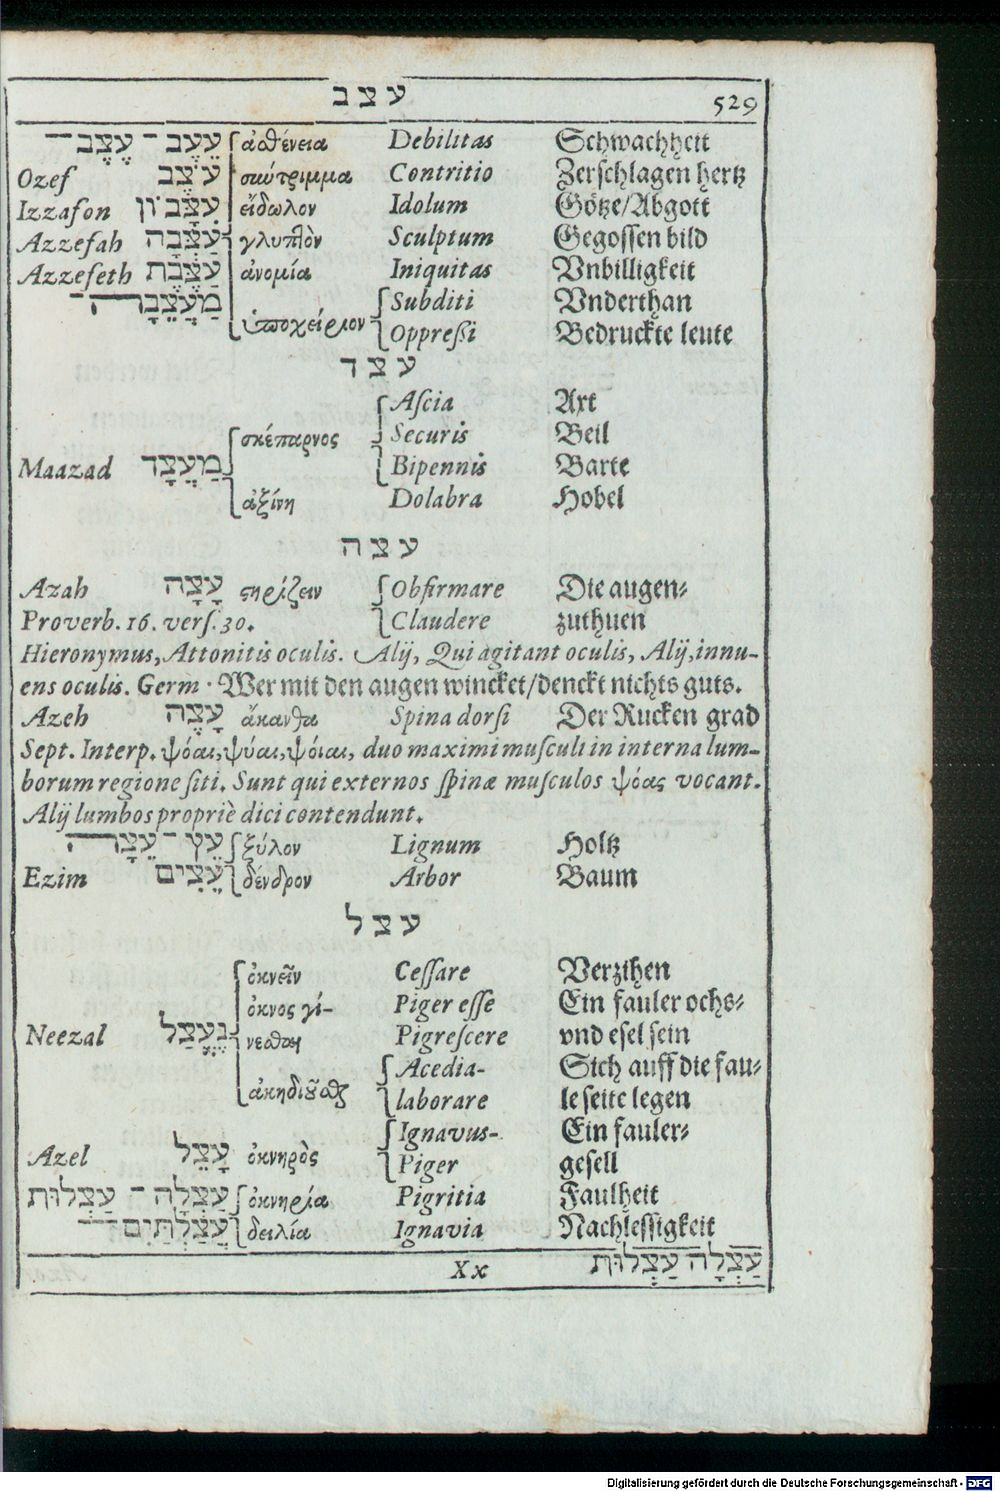 עצב 529
עֶצֶב — עֶצֶב ἀσθένεια Debilitas Schwachheit
Ozef עֹצֶב σιώτριμμα Contritio Zerschlagen hertz
Izzafon עִצָּבוֹן εἴδωλον Idolum Götze/Abgott
Azzefah עַצָּבָה γλυπτὸν Sculptum Gegossen bild
Azzefeth עַצֶּבֶת ἀνομία Iniquitas Vnbilligkeit
מַעֲצֵבָה — ὑποχείριον Subditi Vnderthan
Oppreſsi Bedruckte leute
עצד
Aſcia Axt
σκέπαρνος Securis Beil
Maazad מַעֲצָד Bipennis Barte
ἀξίνη Dolabra Hobel
עצה
Azah עָצָה ςηρίζειν Obfirmare Die augen-
Proverb. 16. verſ. 30. Claudere zuthuen
Hieronymus, Attonitis oculis. Alij, Qui agitant oculis, Alij, innu-
ens oculis. Germ. Wer mit den augen wincket/denckt nichts guts.
Azeh עָצֶה ἄκανθα Spina dorſi Der Rucken grad
Sept. Interp. ψόαι, ψύαι, ψόιαι, duo maximi muſculi in interna lum-
borum regione ſiti. Sunt qui externos ſpinæ muſculos ψόας vocant.
Alij lumbos propriè dici contendunt.
עֵץ — עֵצָה ξύλον Lignum Holtz
Ezim עֵצִים δένδρον Arbor Baum
עצל
ὀκνεῖν Ceſſare Verzihen
ὀκνος γί- Piger eſſe Ein fauler ochs-
Neezal נֶעֱצַל νεσθαι Pigreſcere vnd esel sein
Acedia- Sich auff die fau-
ἀκηδιᾶσθαι laborare le seite legen
Ignavus- Ein fauler-
Azel עָצֵל ὀκνηρὸς Piger gesell
עַצְלָה — עַצְלוּת ὀκνηρία Pigritia Faulheit
עֲצַלְתַּיִם — δειλία Ignavia Nachlessigkeit
Xx עַצְלָה עַצְלוּת
Digitalisierung gefördert durch die Deutsche Forschungsgemeinschaft - DFG